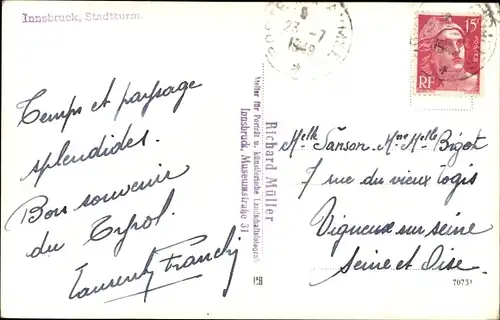 Innsbruck, Stadtturm.
23 - 7
15F
POSTES
RF
Temps et paysage
splendides.
Bon souvenir
du Tyrol.
Laurent Franchi
Richard Müller
Atelier für Porträt u. künstlerische Landschaftsfotograf
Innsbruck, Museumstraße 31
Melle Sanson Mme Melle Bigot
7 rue du vieux logis
Vigneux sur seine
Seine et Oise.
70751